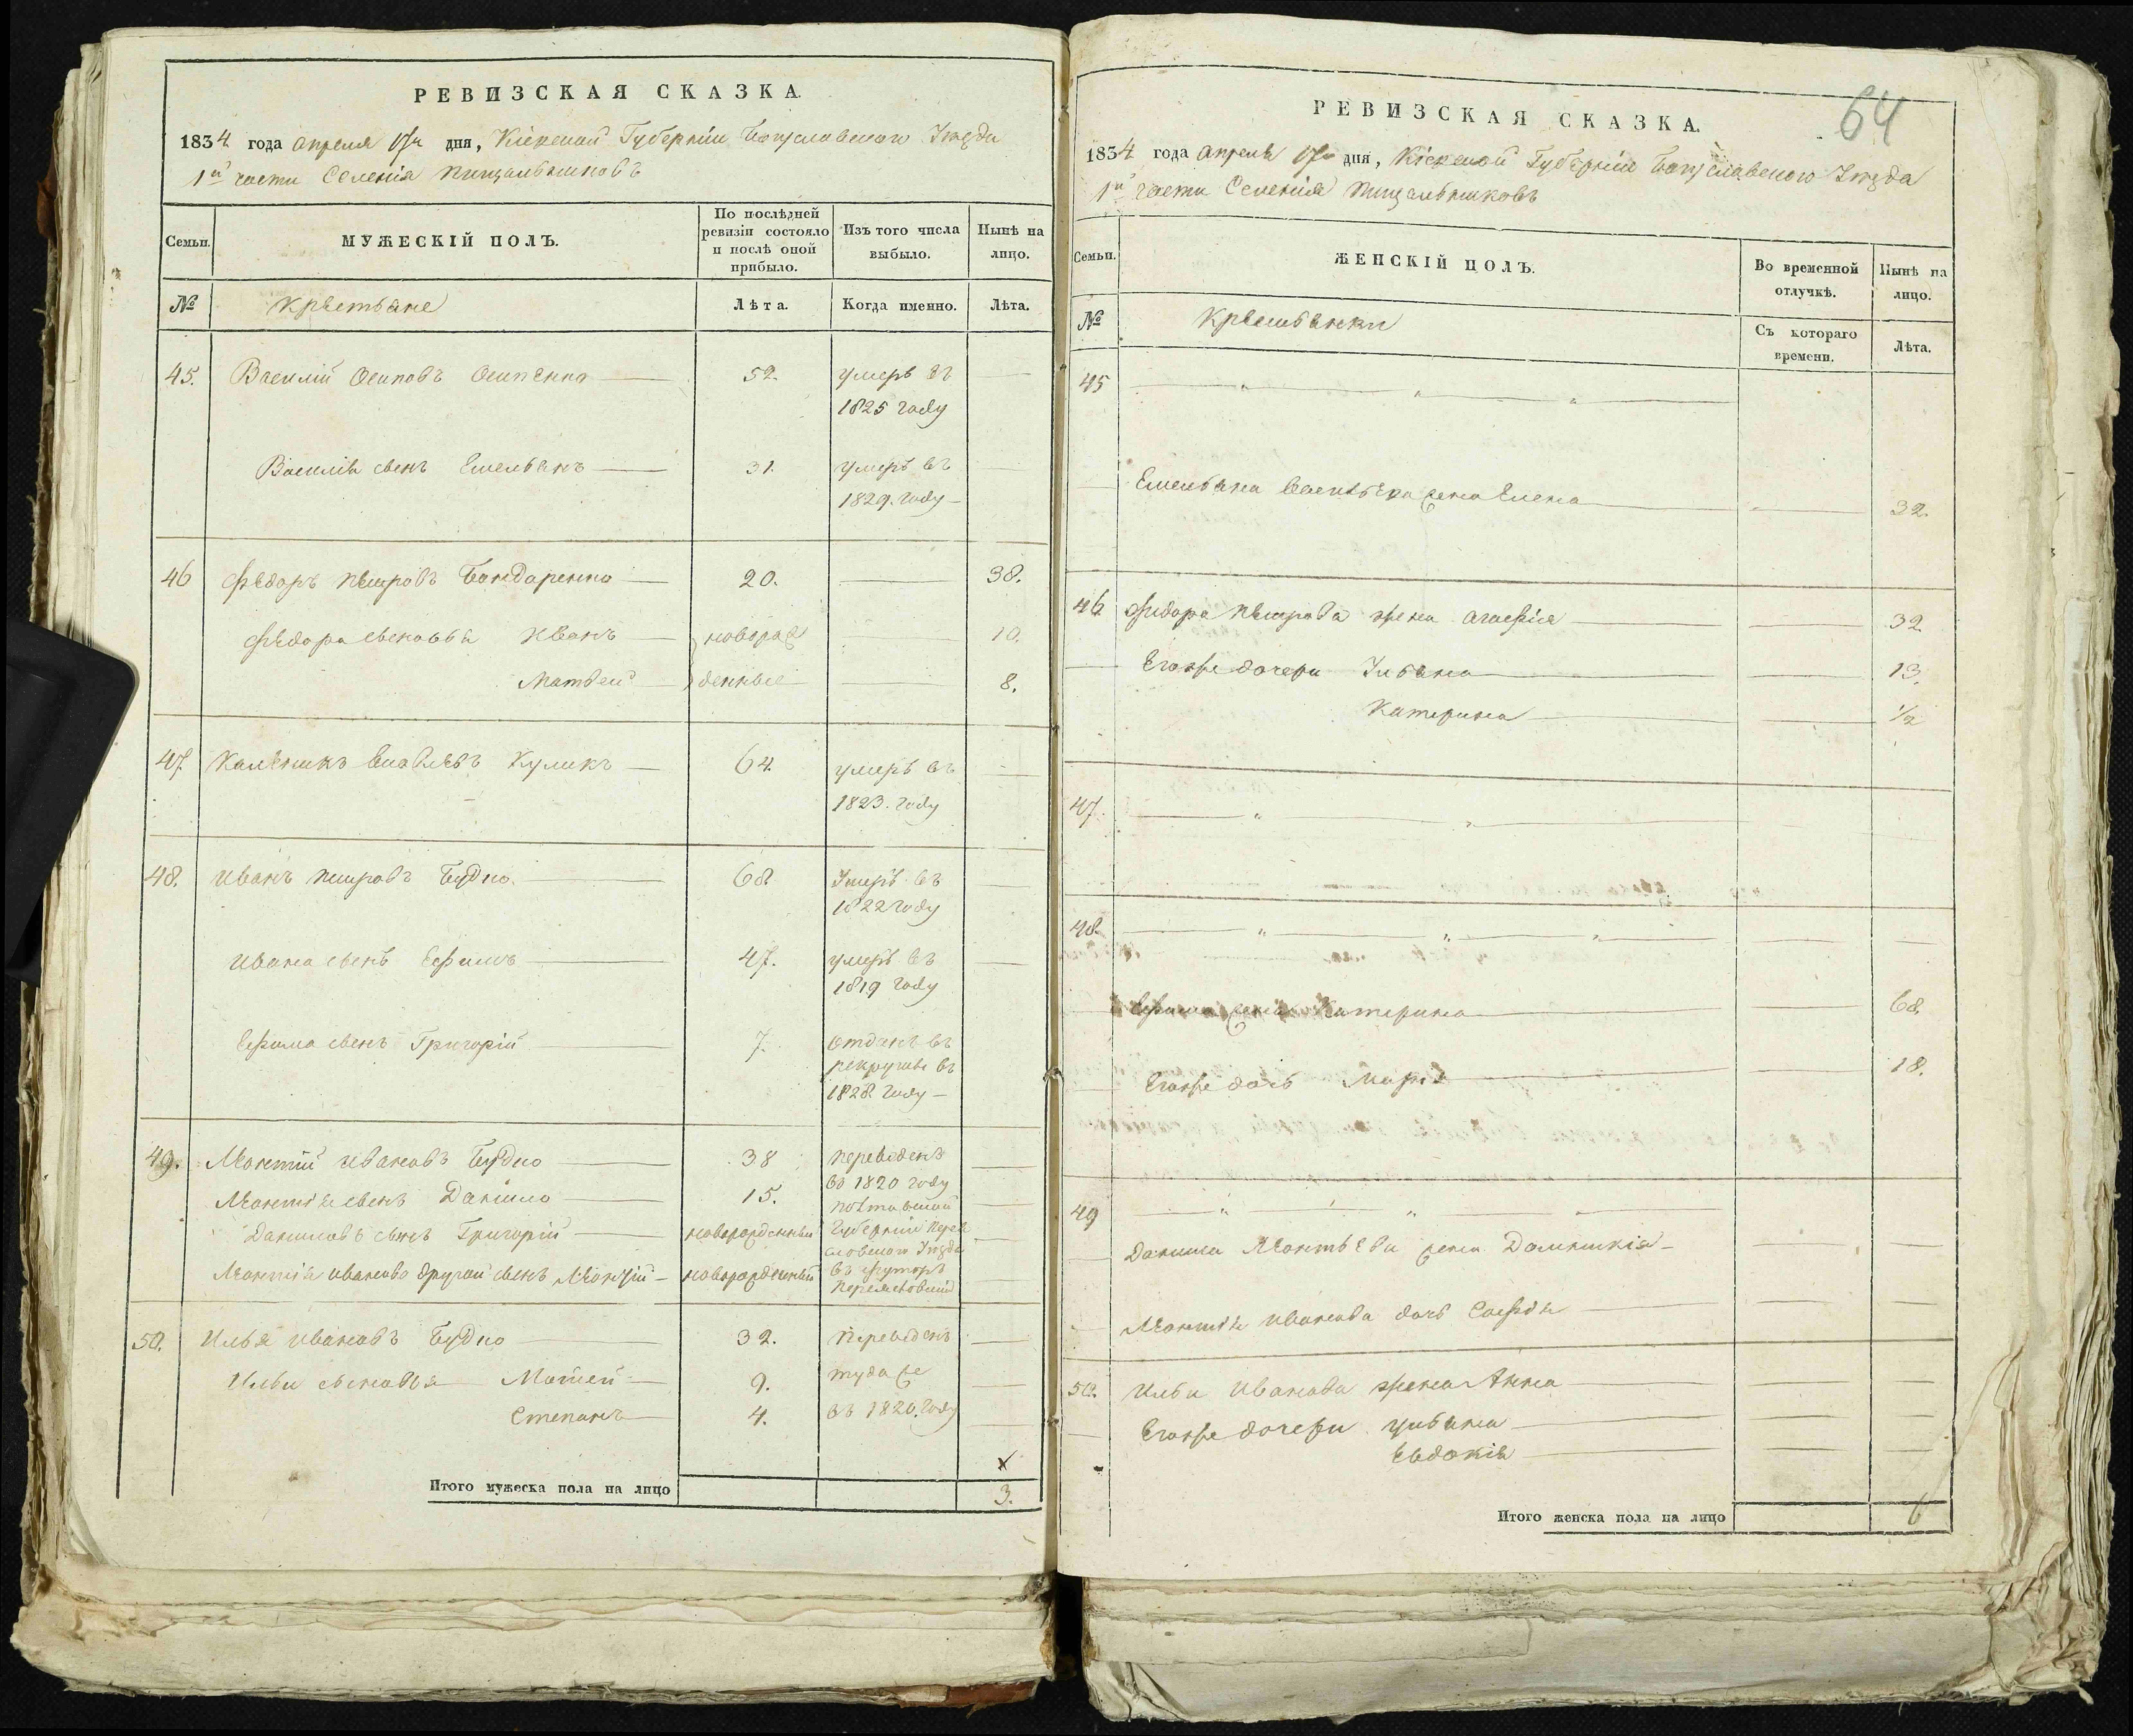 РЕВИЗСКАЯ СКАЗКА.
1834 года апреля 17го дня, Кіевской Губерніи Богуславского Уезда
1й части Селенія Пищальниковъ
Семьи.
МУЖЕСКІЙ ПОЛЪ.
По послѣдней ревизіи состояло и послѣ оной прибыло.
Изъ того числа выбыло.
Нынѣ на лицо.
№ Крестьяне Лѣта. Когда именно. Лѣта.
45. Василій Осиповъ Осипенко 52. умеръ въ
1825 году
Василія сынъ Емельянъ 31. умеръ въ
1829. году
46 Федоръ Петровъ Бондаренко 20. 38.
Федора сыновья Иванъ новорож 10.
Матвей денные 8.
47 Каленикъ Яковлевъ Куликъ 64. умеръ въ
1823. году
48. Иванъ Петровъ Будко 68 Умеръ въ
1822 году
Ивана сынъ Ефимъ 47. умеръ въ
1819 году
Ефима сынъ Григорій 7. отданъ въ
рекруты въ
1828 году
49. Леонтій Ивановъ Будко 38 переведенъ
въ 1820 году
Леонтія сынъ Данило 15. Полтавской
Даниловъ сынъ Григорій новорожденный Губерніи Перея
словского Уезда
Леонтія Иванова другой сынъ новорожденный въ хуторъ
50. Илья Ивановъ Будко 32. Переведенъ
Ильи сыновья Матвей 9. туда же
Степанъ 4. въ 1820. году
х
Итого мужеска пола на лицо 3.
64
РЕВИЗСКАЯ СКАЗКА.
1834 года апреля 17го дня, Кіевской Губерніи Богуславского Уезда
1й части Селенія Пищальниковъ
Семьи.
ЖЕНСКІЙ ПОЛЪ.
Во временной отлучкѣ.
Нынѣ на лицо.
№ Крестьянки Съ котораго времени. Лѣта.
45
Емельяна Васильева жена Елена 32.
46 Федора Петрова жена Агафія 32
Егоже дочери Ульяна 13.
Катерина 1/2
47
48
Ефима жена Катерина 68.
Егоже дочь Марія 18.
49
Данила Леонтьева жена Домникія
Леонтія Иванова дочь Софія
50. Ильи Иванова жена Анна
Егоже дочери Ульяна
Евдокія
Итого женска пола на лицо 6